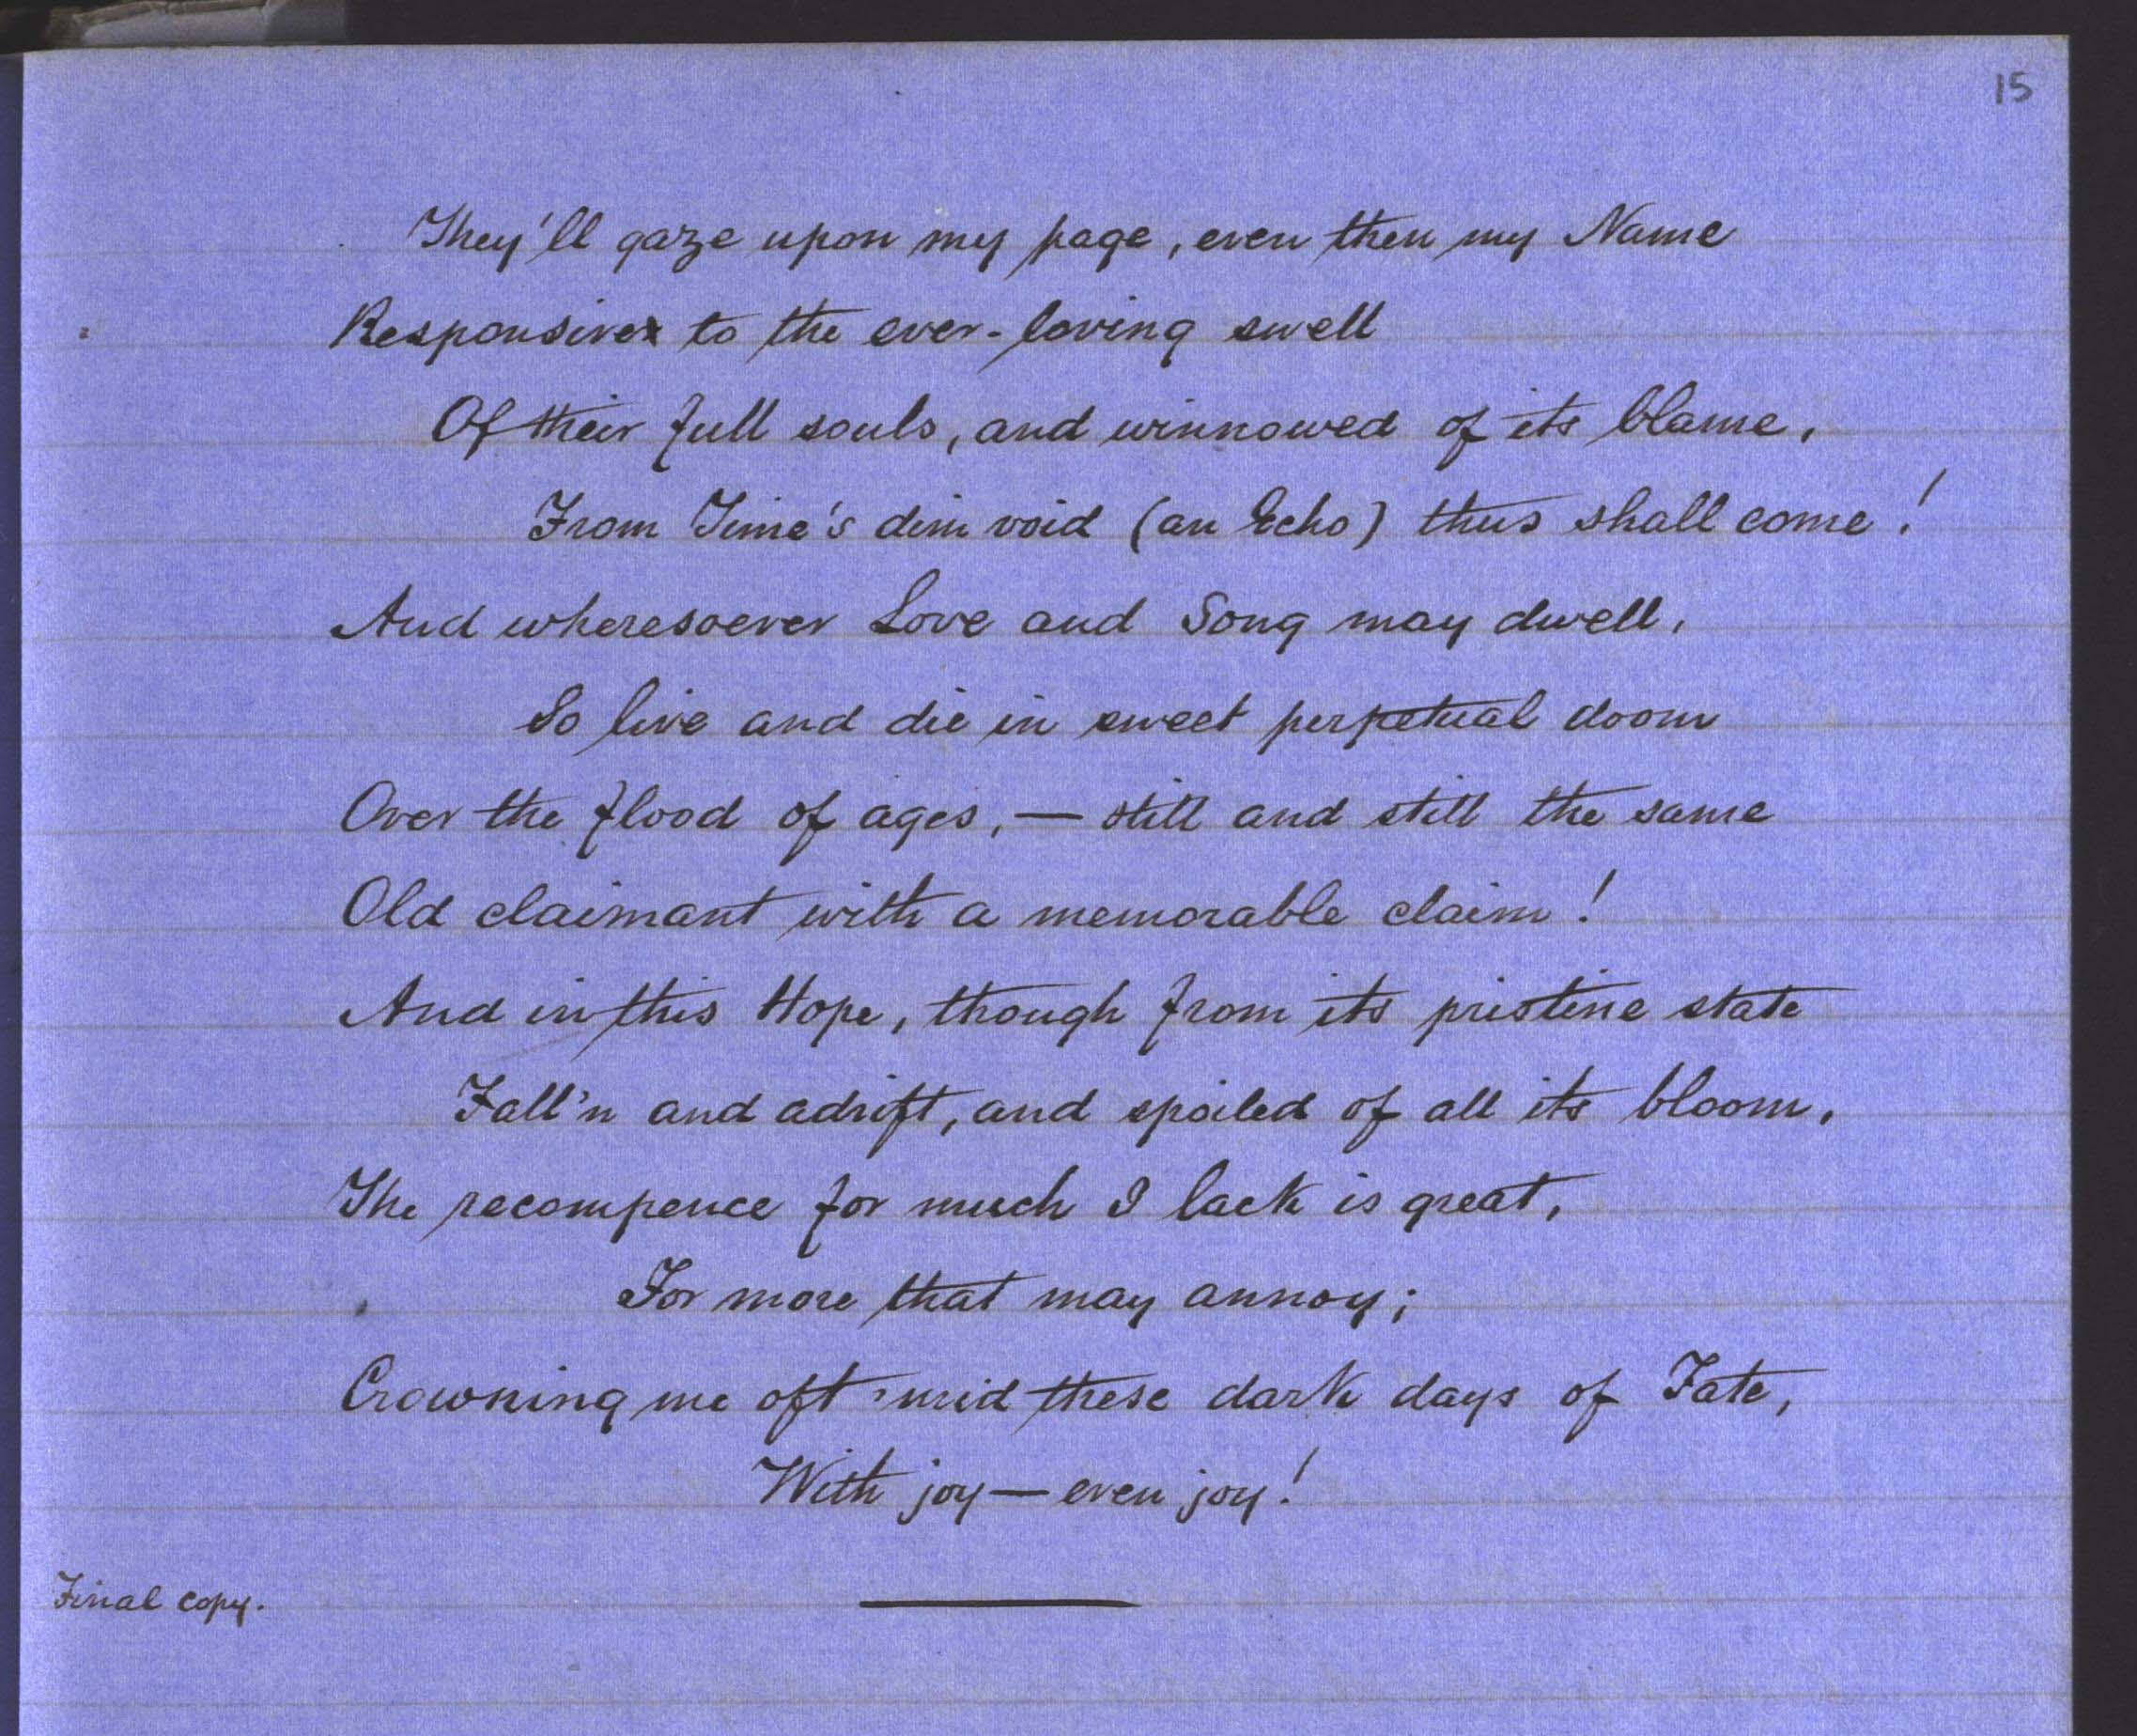 15
They'll gaze upon my page, even then my Name
Responsive to the ever-loving swell
Of their full souls, and winnowed of its blame,
From Time's dim void (an Echo) thus shall come!
And wheresoever Love and Song may dwell,
So live and die in sweet perpetual doom
Over the flood of ages, — still and still the same
Old claimant with a memorable claim!
And in this Hope, though from its pristine state
Fall'n and adrift, and spoiled of all its bloom,
The recompence for much I lack is great,
For more that may annoy;
Crowning me oft 'mid these dark days of Fate,
With joy — even joy!
Final copy.